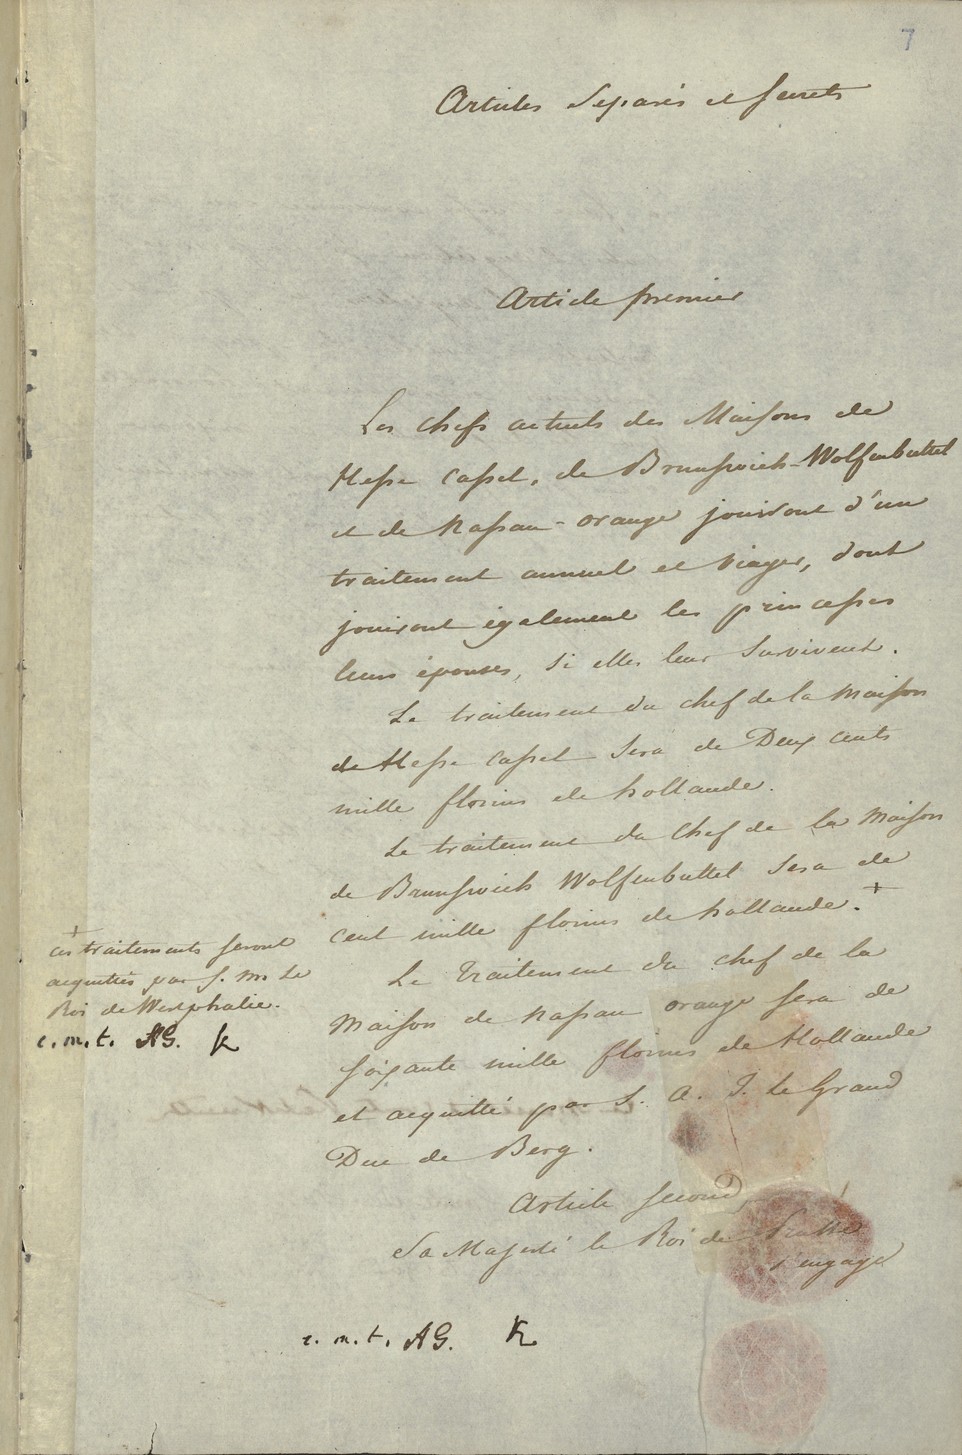 7
Articles Separés et secrets
Article premier
Les chefs actuels des Maisons de
Hesse Cassel, de Brunswick-Wolfenbuttel
et de Nassau-orange jouiront d'un
traitement annuel et viager, dont
jouiront également les princesses
leurs épouses, si elles leur survivent.
Le traitement du chef de la Maison
de Hesse Cassel sera de Deux cents
mille florins de hollande.
Le traitement du Chef de la Maison
de Brunswick Wolfenbuttel sera de
cent mille florins de hollande. +
+
ces traitements seront
acquittés par S. M. Le
Roi de Westphalie.
c. m. t. AG. K
Le Traitement du chef de la
Maison de Nassau orange sera de
soixante mille florins de Hollande
et acquitté par S. A. I. le Grand
Duc de Berg.
Article second
Sa Majesté le Roi de Prusse
s'engage
c. m. t. AG. K